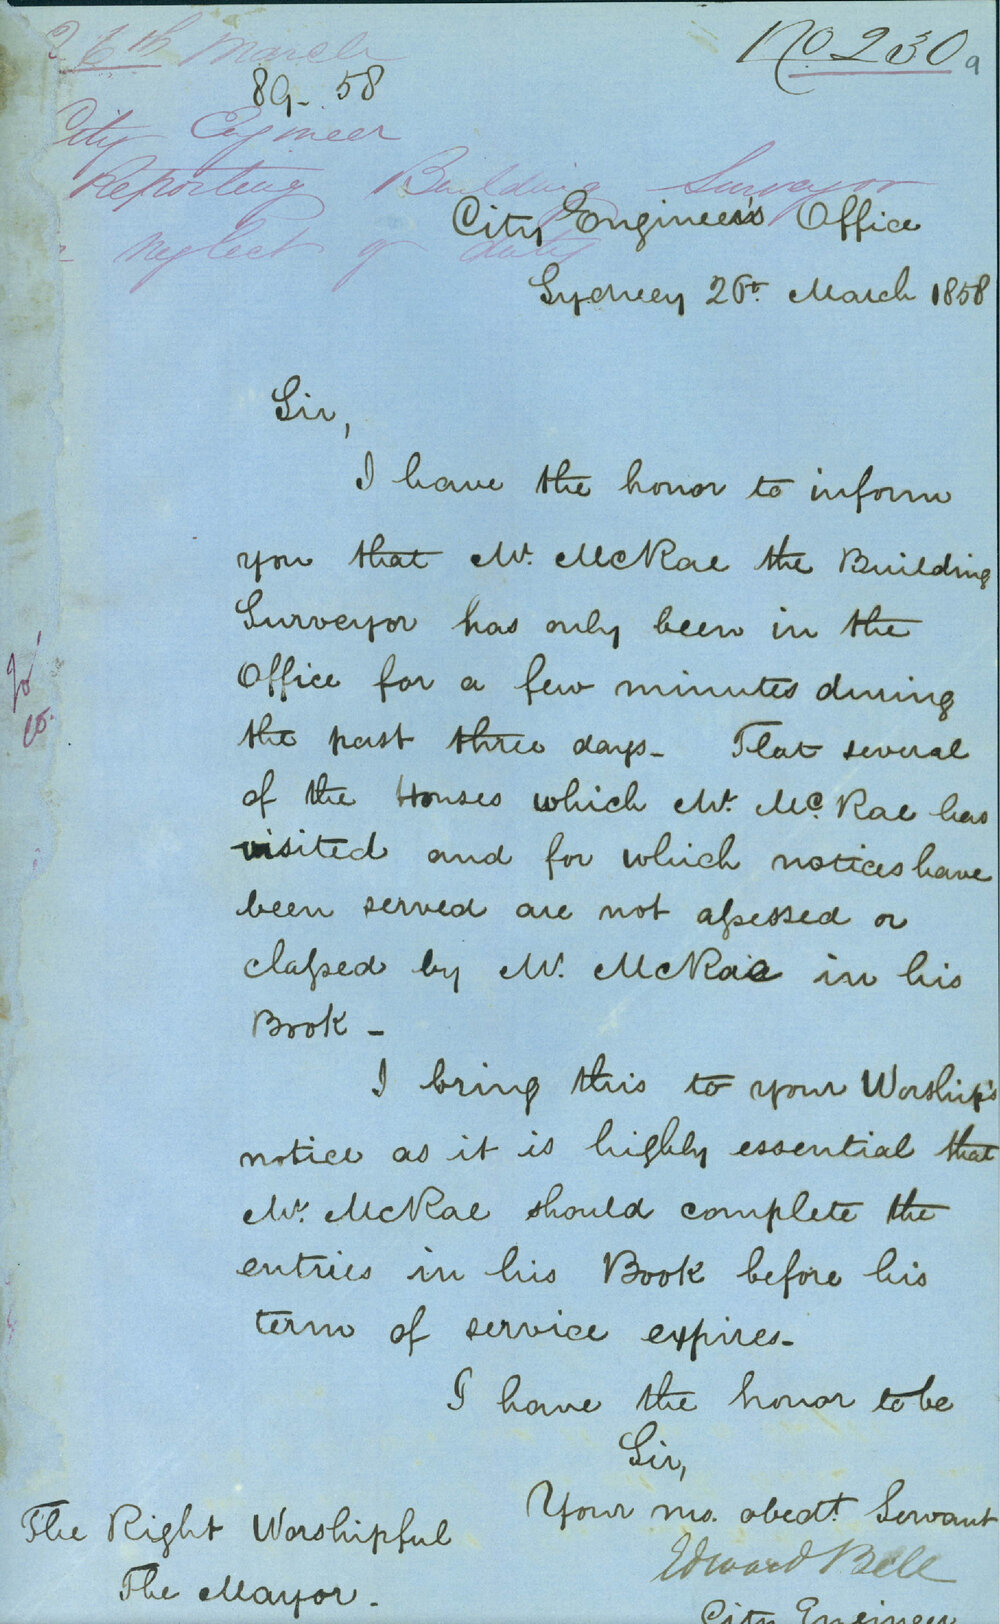 No 230a
26th March
89-58
City Engineer
Reporting Building Surveyor
neglect of duty
City Engineer's Office
Sydney 26th March 1858
Sir,
I have the honor to inform
you that Mr. McRae the Building
Surveyor has only been in the
Office for a few minutes during
the past three days- That several
of the Houses which Mr. McRae has
visited and for which notices have
been served are not aſsessed or
claſsed by Mr. McRae in his
Book-
I bring this to your Worship's
notice as it is highly essential that
Mr. McRae should complete the
entries in his Book before his
term of service expires-
I have the honor to be
Sir,
Your mo. obedt. Servant
Edward Bell
City Engineer
The Right Worshipful
The Mayor.